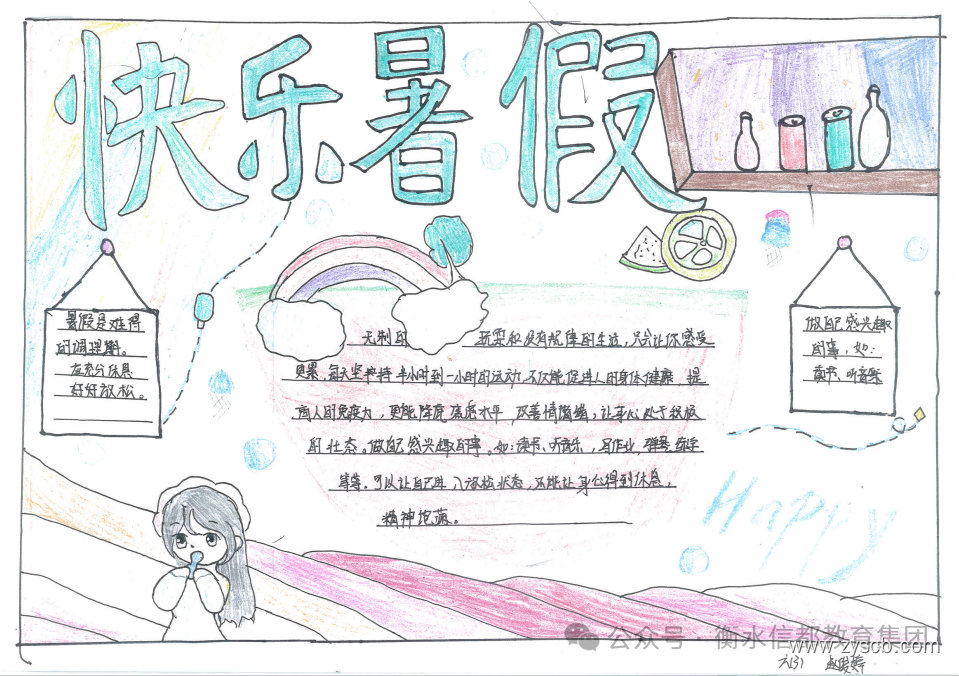 快乐暑假
暑假是难得
的调理期。
在充分休息
好好放松。
无制的
玩耍和没有规律的生活，只会让你感受
更累，每天坚持 半小时到一小时的运动，不仅能促进人的身体健康，提
高人的免疫力，更能降度 焦虑水平，改善情绪，让身心处于积极
的状态。做自己感兴趣的事。如：读书、听音乐，写作业，弹琴
等等。可以让自己进入放松状态，还能让身心得到休息，
精神饱满。
做自己感兴趣
的事，如：
读书、听音乐
Happy
公众号·衡水信都教育集团
www.zyscb.com
六(3)